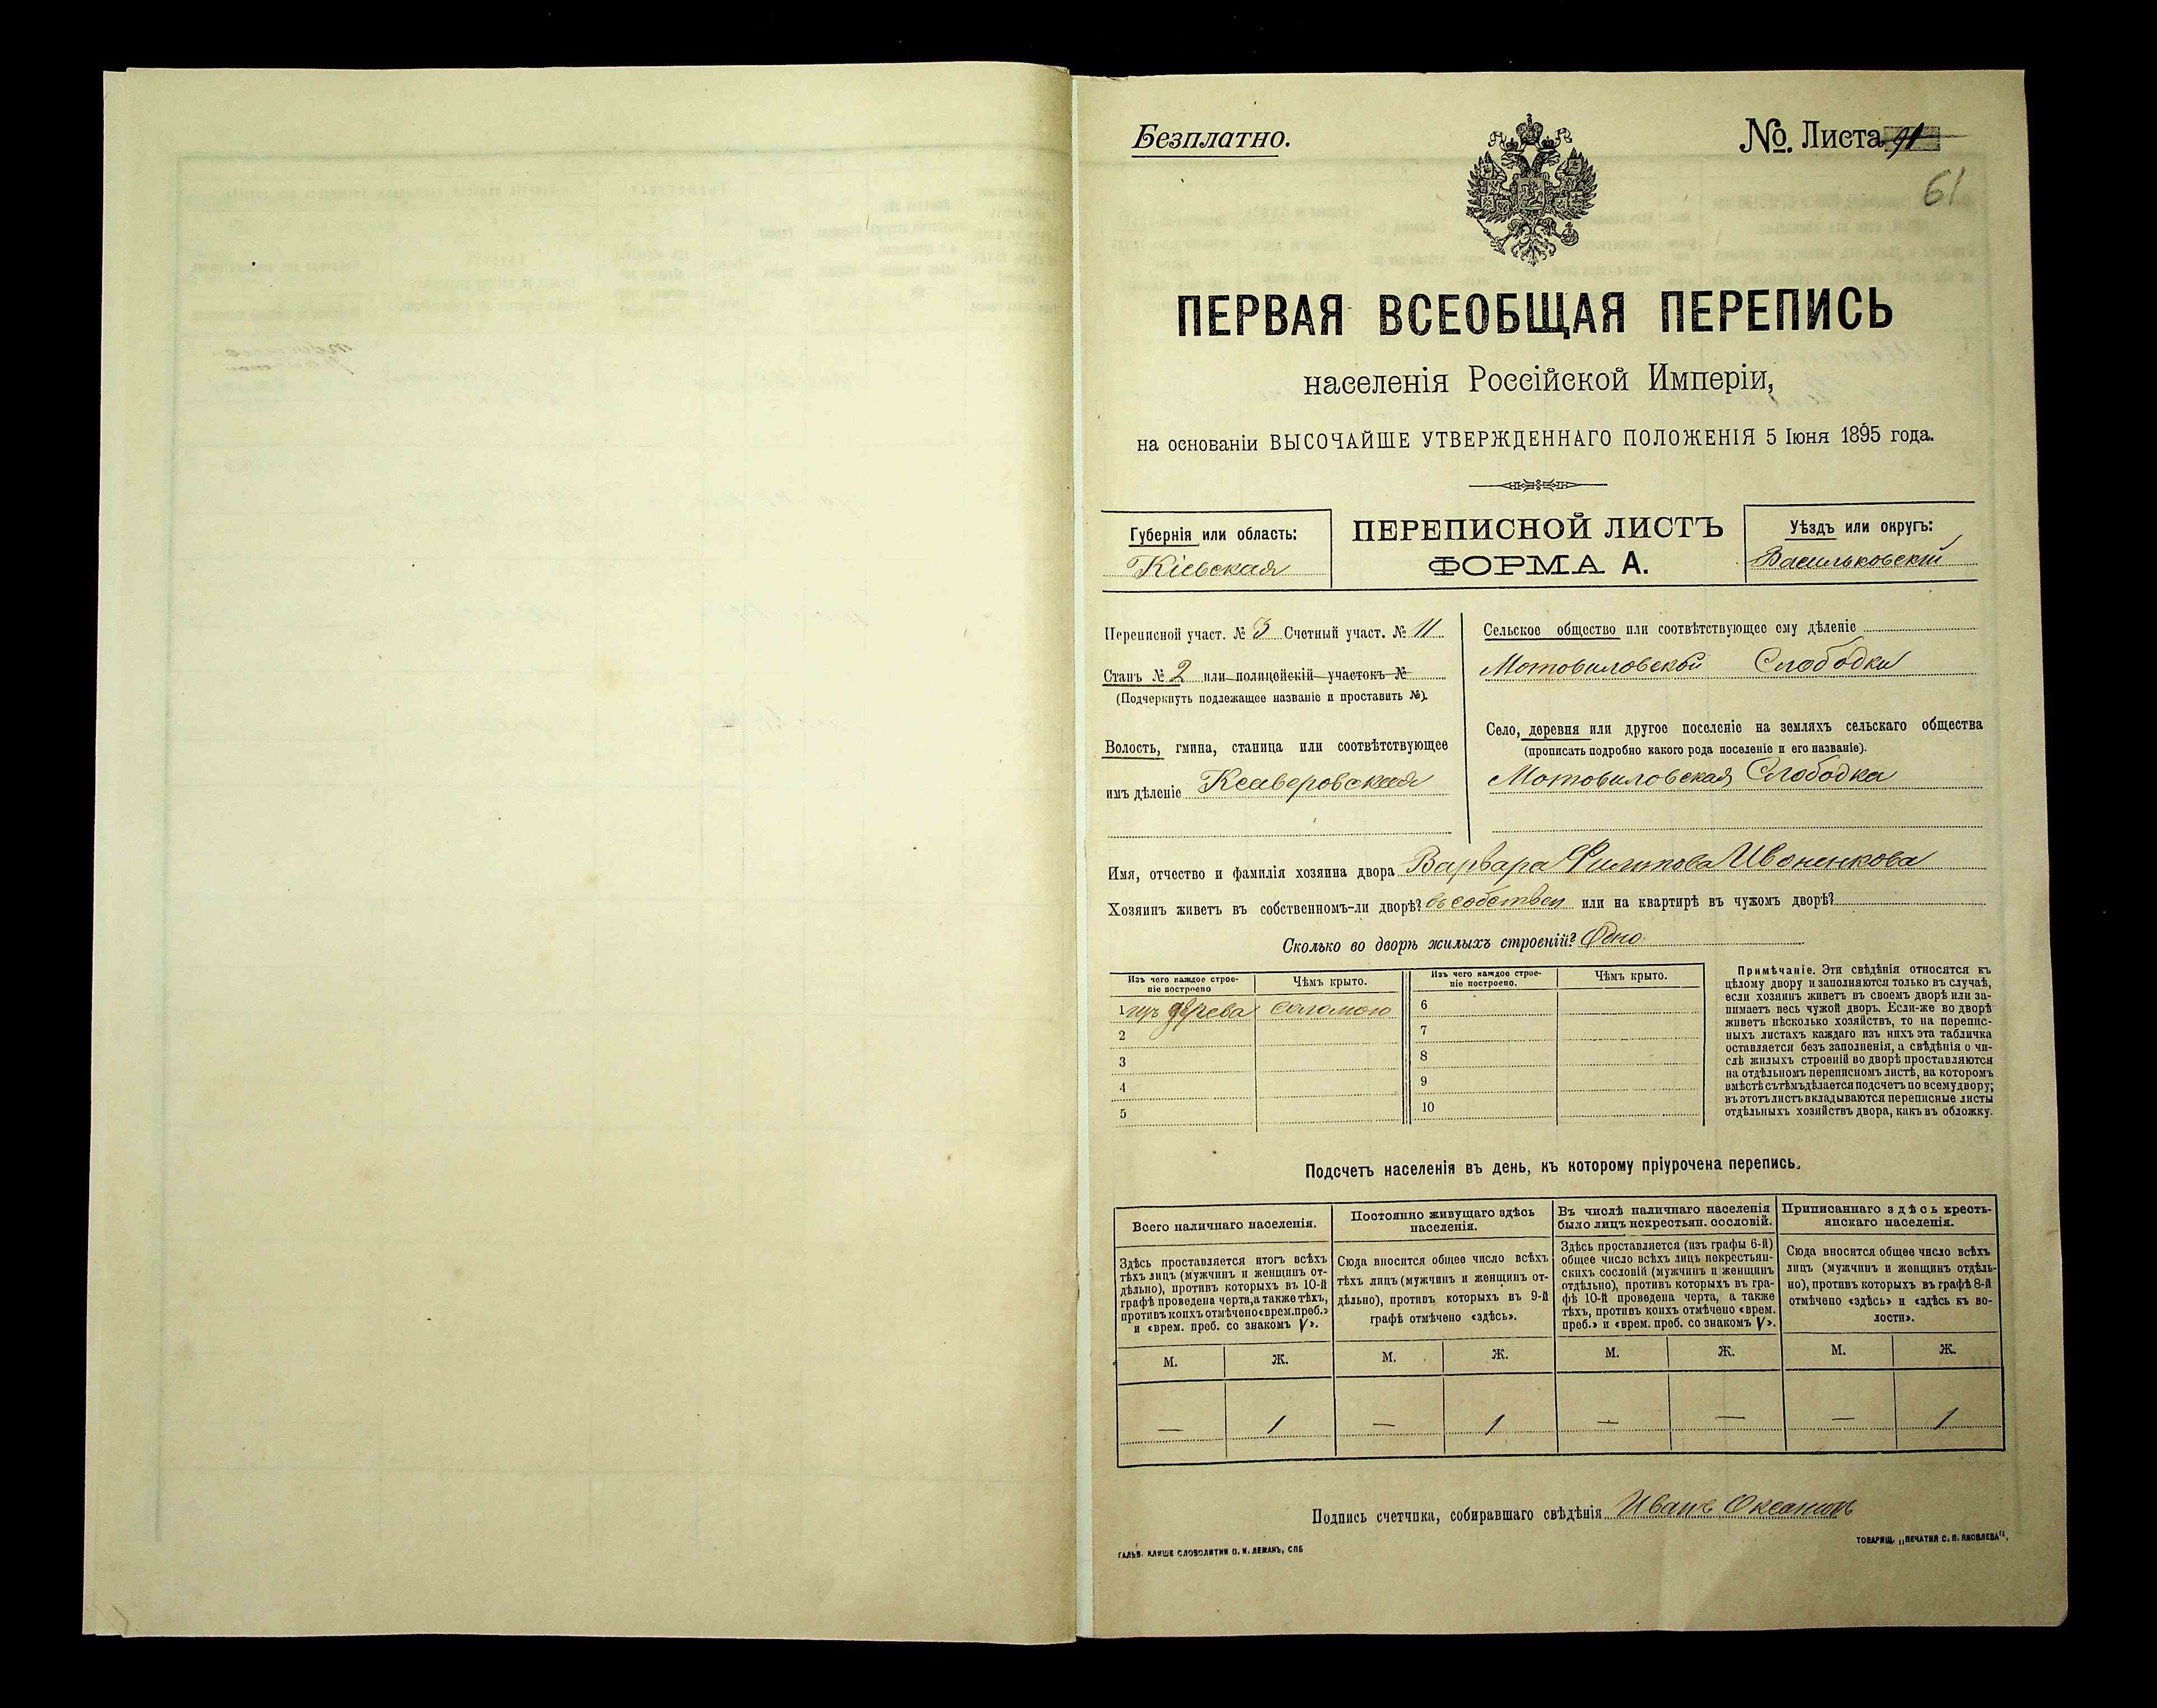 Безплатно.
№. Листа 91
61
ПЕРВАЯ ВСЕОБЩАЯ ПЕРЕПИСЬ
населенія Россійской Имперіи,
на основаніи ВЫСОЧАЙШЕ УТВЕРЖДЕННАГО ПОЛОЖЕНІЯ 5 Іюня 1895 года.
Губернія или область:
Кіевская
ПЕРЕПИСНОЙ ЛИСТЪ
ФОРМА А.
Уѣздъ или округъ:
Васильковскій
Переписной участ. № 3 Счетный участ. № 11
Станъ № 2 или полицейскій участокъ №
(Подчеркнуть подлежащее названіе и проставить №).
Волость, гмина, станица или соотвѣтствующее
имъ дѣленіе Ксаверовская
Сельское общество или соотвѣтствующее ему дѣленіе
Мотовиловской Слободки
Село, деревня или другое поселеніе на земляхъ сельскаго общества
(прописать подробно какого рода поселеніе и его названіе).
Мотовиловская Слободка
Имя, отчество и фамилія хозяина двора Варвара Филипова Ивоненкова
Хозяинъ живетъ въ собственномъ-ли дворѣ? въ собствен или на квартирѣ въ чужомъ дворѣ?
Сколько во дворѣ жилыхъ строеній? Одно
Изъ чего каждое строе-
ніе построено
Чѣмъ крыто.
Изъ чего каждое строе-
ніе построено.
Чѣмъ крыто.
1 изъ дерева соломою
2
3
4
5
6
7
8
9
10
Примѣчаніе. Эти свѣдѣнія относятся къ
цѣлому двору и заполняются только въ случаѣ,
если хозяинъ живетъ въ своемъ дворѣ или за-
нимаетъ весь чужой дворъ. Если-же во дворѣ
живетъ нѣсколько хозяйствъ, то на перепис-
ныхъ листахъ каждаго изъ нихъ эта табличка
оставляется безъ заполненія, а свѣдѣнія о чи-
слѣ жилыхъ строеній во дворѣ проставляются
на отдѣльномъ переписномъ листѣ, на которомъ
вмѣстѣ съ тѣмъ дѣлается подсчетъ по всему двору;
въ этотъ листъ вкладываются переписные листы
отдѣльныхъ хозяйствъ двора, какъ въ обложку.
Подсчетъ населенія въ день, къ которому пріурочена перепись.
Всего наличнаго населенія.
Здѣсь проставляется итогъ всѣхъ
тѣхъ лицъ (мужчинъ и женщинъ от-
дѣльно), противъ которыхъ въ 10-й
графѣ проведена черта, а также тѣхъ,
противъ коихъ отмѣчено «врем. преб.»
и «врем. преб. со знакомъ V».
Постоянно живущаго здѣсь
населенія.
Сюда вносится общее число всѣхъ
тѣхъ лицъ (мужчинъ и женщинъ от-
дѣльно), противъ которыхъ въ 9-й
графѣ отмѣчено «здѣсь».
Въ числѣ наличнаго населенія
было лицъ некрестьян. сословій.
Здѣсь проставляется (изъ графы 6-й)
общее число всѣхъ лицъ некрестьян-
скихъ сословій (мужчинъ и женщинъ
отдѣльно), противъ которыхъ въ гра-
фѣ 10-й проведена черта, а также
тѣхъ, противъ коихъ отмѣчено «врем.
преб.» и «врем. преб. со знакомъ V».
Приписаннаго здѣсь кресть-
янскаго населенія.
Сюда вносится общее число всѣхъ
лицъ (мужчинъ и женщинъ отдѣль-
но), противъ которыхъ въ графѣ 8-й
отмѣчено «здѣсь» и «здѣсь къ во-
лости».
М. Ж. М. Ж. М. Ж. М. Ж.
— 1 — 1 — — — 1
Подпись счетчика, собиравшаго свѣдѣнія Иванъ
ГАЛЬВ. КЛИШЕ СЛОВОЛИТНИ О. И. ЛЕМАНЪ, СПБ
ТОВАРИЩ. „ПЕЧАТНЯ С. П. ЯКОВЛЕВА“,